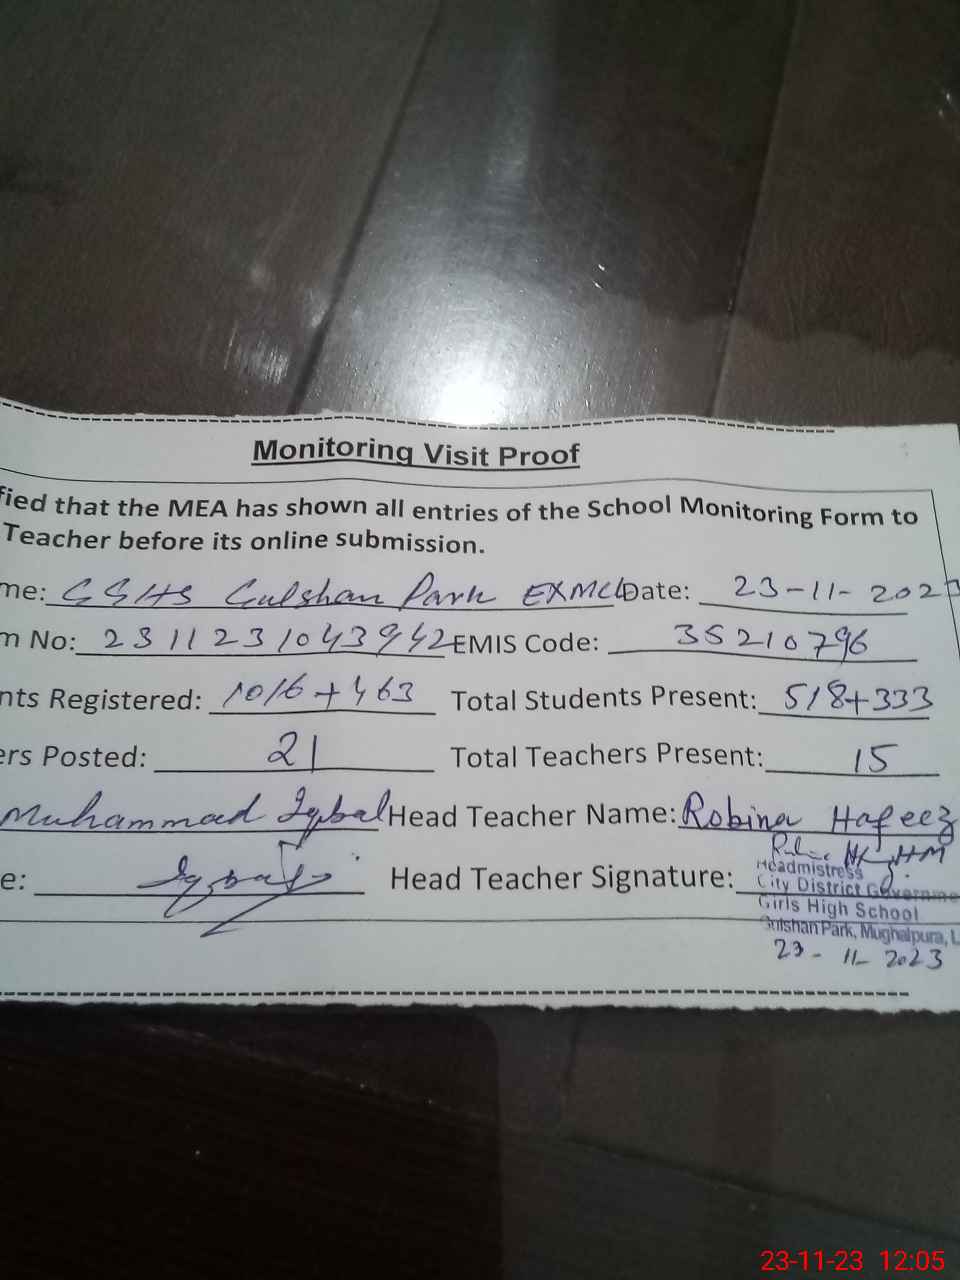 Monitoring Visit Proof
fied that the MEA has shown all entries of the School Monitoring Form to
Teacher before its online submission.
me: GGHS Gulshan Park EXMCL Date: 23-11-2023
m No: 2311231043942 EMIS Code: 35210796
nts Registered: 1016+463 Total Students Present: 518+333
ers Posted: 21 Total Teachers Present: 15
Muhammad Iqbal Head Teacher Name: Robina Hafeez
e: Iqbal Head Teacher Signature:
Headmistress
City District Governme
Girls High School
Gulshan Park, Mughalpura, L
23-11-2023
23-11-23 12:05